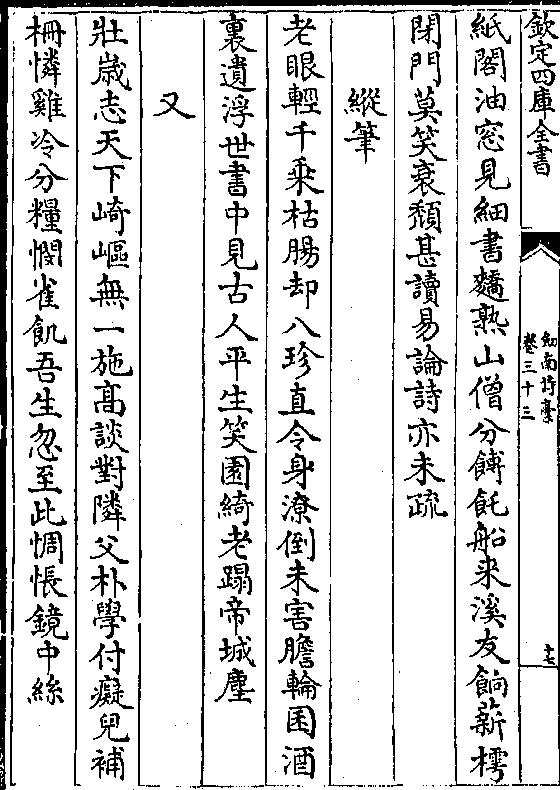 欽定四庫全書
劍南詩藁
卷三十三
十七
紙閣油窓見細書䴬熟山僧分餺飥船来溪友餉薪樗
閉門莫笑衰頽甚讀易論詩亦未疏
縱筆
老眼輕千乘枯腸却八珍直令身潦倒未害膽輪囷酒
裏遺浮世書中見古人平生笑園綺老蹋帝城塵
又
壯歳志天下崎嶇無一施髙談對隣父朴學付癡兒補
柵憐雞冷分糧憫雀飢吾生忽至此惆悵鏡中絲